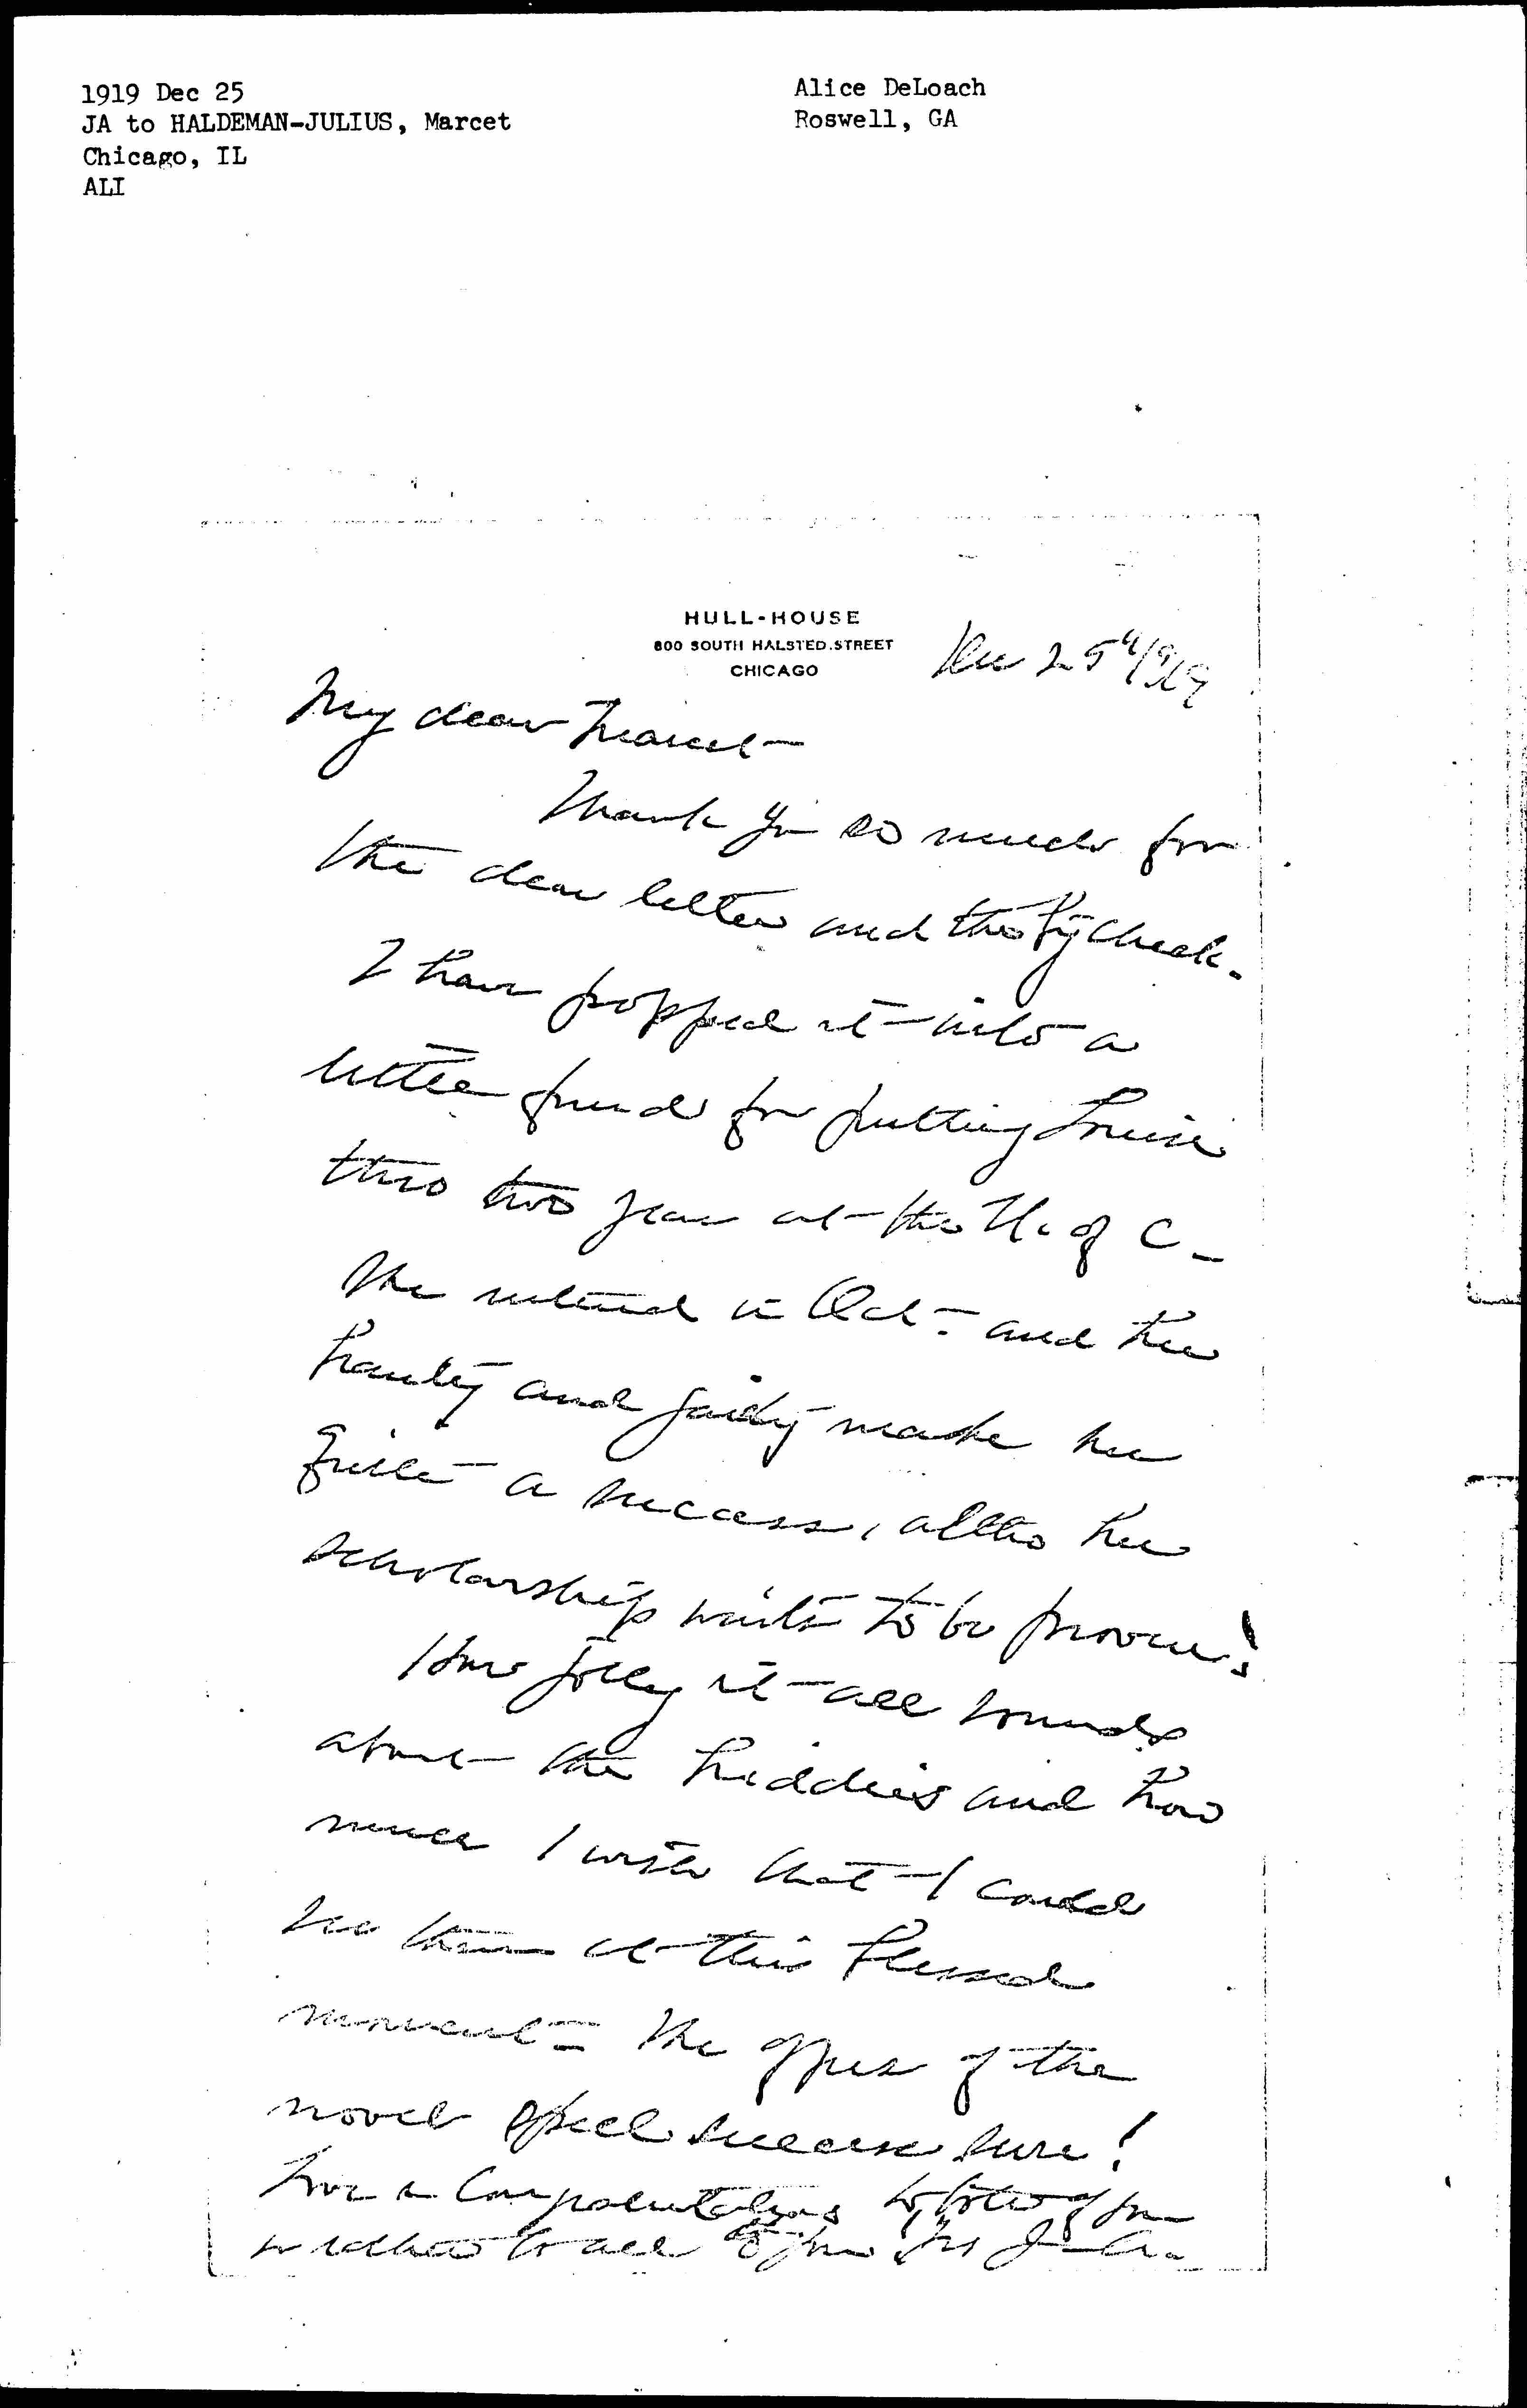 1919 Dec 25
JA to HALDEMAN-JULIUS, Marcet
Chicago, IL
ALI
Alice DeLoach
Roswell, GA
HULL-HOUSE
800 SOUTH HALSTED STREET
CHICAGO
Dec 25" 1919
My dear Marcet—
Thank you so much for
the dear letter and the big check.
I have popped it into a
little fund for putting Louise
thro two years at the U. of C—
She entered in Oct— and her
beauty and gaiety make her
quite a success, altho her
scholarship waits to be proven!
How jolly it all sounds
about the kiddies and how
much I wish that I could
see them at this blessed
moment— The of the
novel spell success sure!
Love & Congratulations to both of you
to all Yrs J. A.